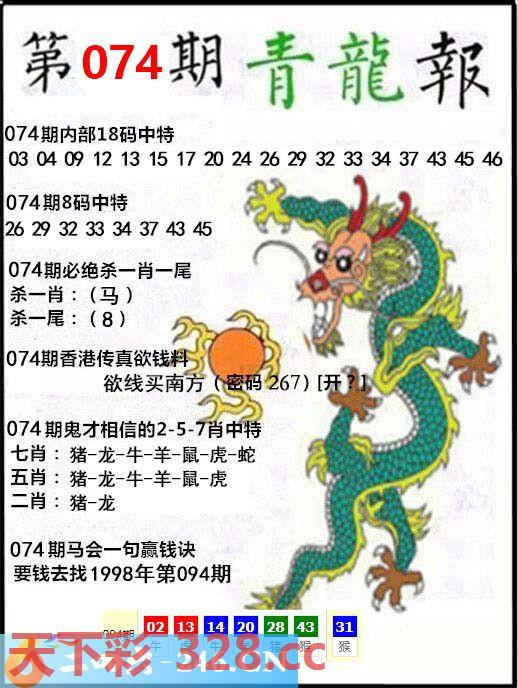 第074期 青龍報
074期内部18码中特
03 04 09 12 13 15 17 20 24 26 29 32 33 34 37 43 45 46
074期8码中特
26 29 32 33 34 37 43 45
074期必绝杀一肖一尾
杀一肖：（马）
杀一尾：（8）
074期香港传真欲钱料
欲线买南方（密码 267）[开？]
074期鬼才相信的2-5-7肖中特
七肖：猪-龙-牛-羊-鼠-虎-蛇
五肖：猪-龙-牛-羊-鼠-虎
二肖：猪-龙
074期马会一句赢钱诀
要钱去找1998年第094期
094期 02 13 14 20 28 43 31
牛 虎 猪 猴 猴
天下彩 328.cc